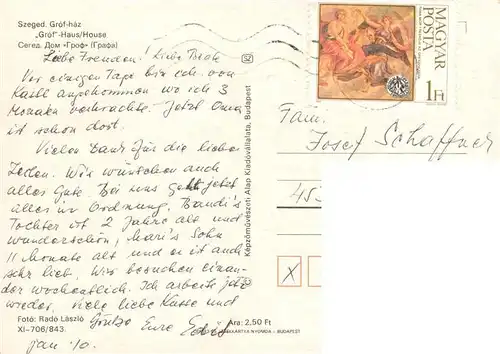 Szeged. Gróf-ház
„Gróf"-Haus/House
Сегед. Дом «Гроф» (Графа)
Liebe Freunden! Liebe
Vor einigen Tage bin ich von
angekommen wo ich 3
Monaten verbrachte. Jetzt Oma
ist schon dort.
Vielen Dank für die liebe
Zeilen. Wir wünschen auch
alles Gute. Bei uns geht jetzt
alles in Ordnung. Bandi's
Tochter ist 2 Jahre alt und
wunderschön, Mari's Sohn
11 Monate alt und er ist auch
sehr lieb. Wir besuchen einan-
der wochentlich. Ich arbeite jetzt
wieder. Viele liebe Küsse und
Eure
Fotó: Radó László
XI-706/843.
Ára: 2,50 Ft
jan 10.
Képzőművészeti Alap Kiadóvállalata, Budapest
SZ
MAGYAR
POSTA
1Ft
Fam.
Josef Schaffner
X